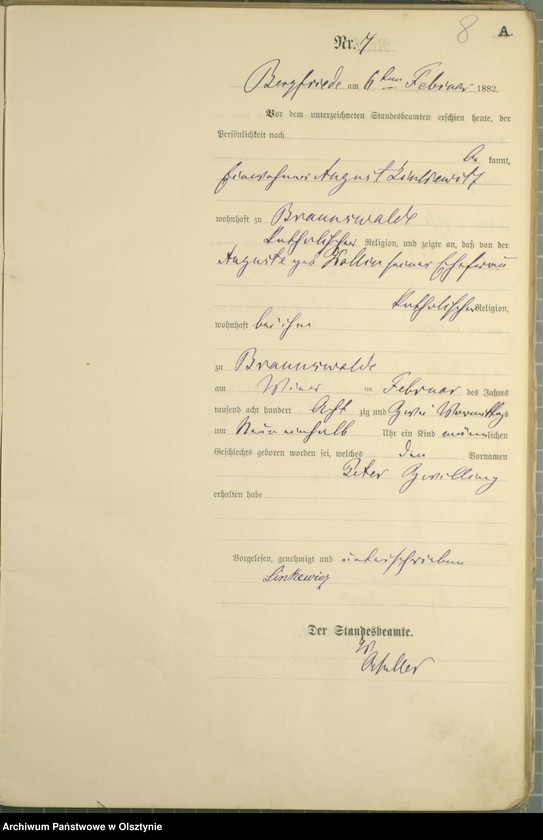 8 A.
Nr. 7
Bergfriede am 6ten Februar 1882.
Vor dem unterzeichneten Standesbeamten erschien heute, der
Persönlichkeit nach
be kannt,
Einwohner August Linkiewitz
wohnhaft zu Braunswalde
katholischer Religion, und zeigte an, daß von der
Auguste geb Kollin seiner Ehefrau
katholischer Religion,
wohnhaft bei ihm
zu Braunswalde
am ten Februar des Jahres
tausend acht hundert Acht zig und Zwei Vormittags
um Neun einhalb Uhr ein Kind männlichen
Geschlechts geboren worden sei, welches den Vornamen
Peter Zwilling
erhalten habe
Vorgelesen, genehmigt und unterschrieben
Linkewicz
Der Standesbeamte.
Archiwum Państwowe w Olsztynie